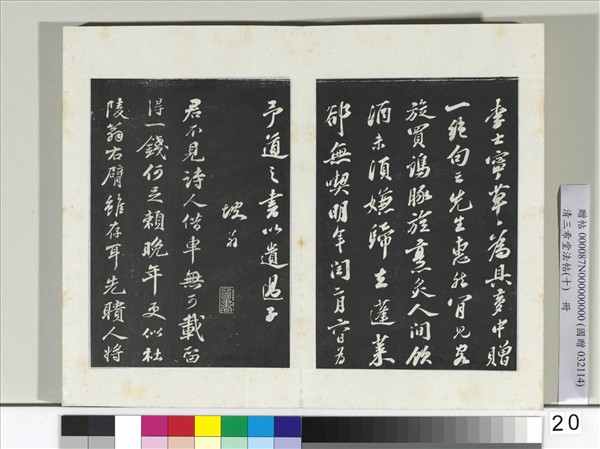 李士寧草草為具夢中贈
一絕句云先生惠然肎見客
旋買鷄豚旋烹炙人間飲
酒未須嫌歸去蓬萊
卻無喫明年閏二月六日為
予道之書以遺過子
坡翁
君不見詩人借車無可載留
得一錢何足賴晚年更似杜
陵翁右臂雖存耳先聵人將
贈帖 000087N000000000 (國贈 032114)
清三希堂法帖(十) 冊
20